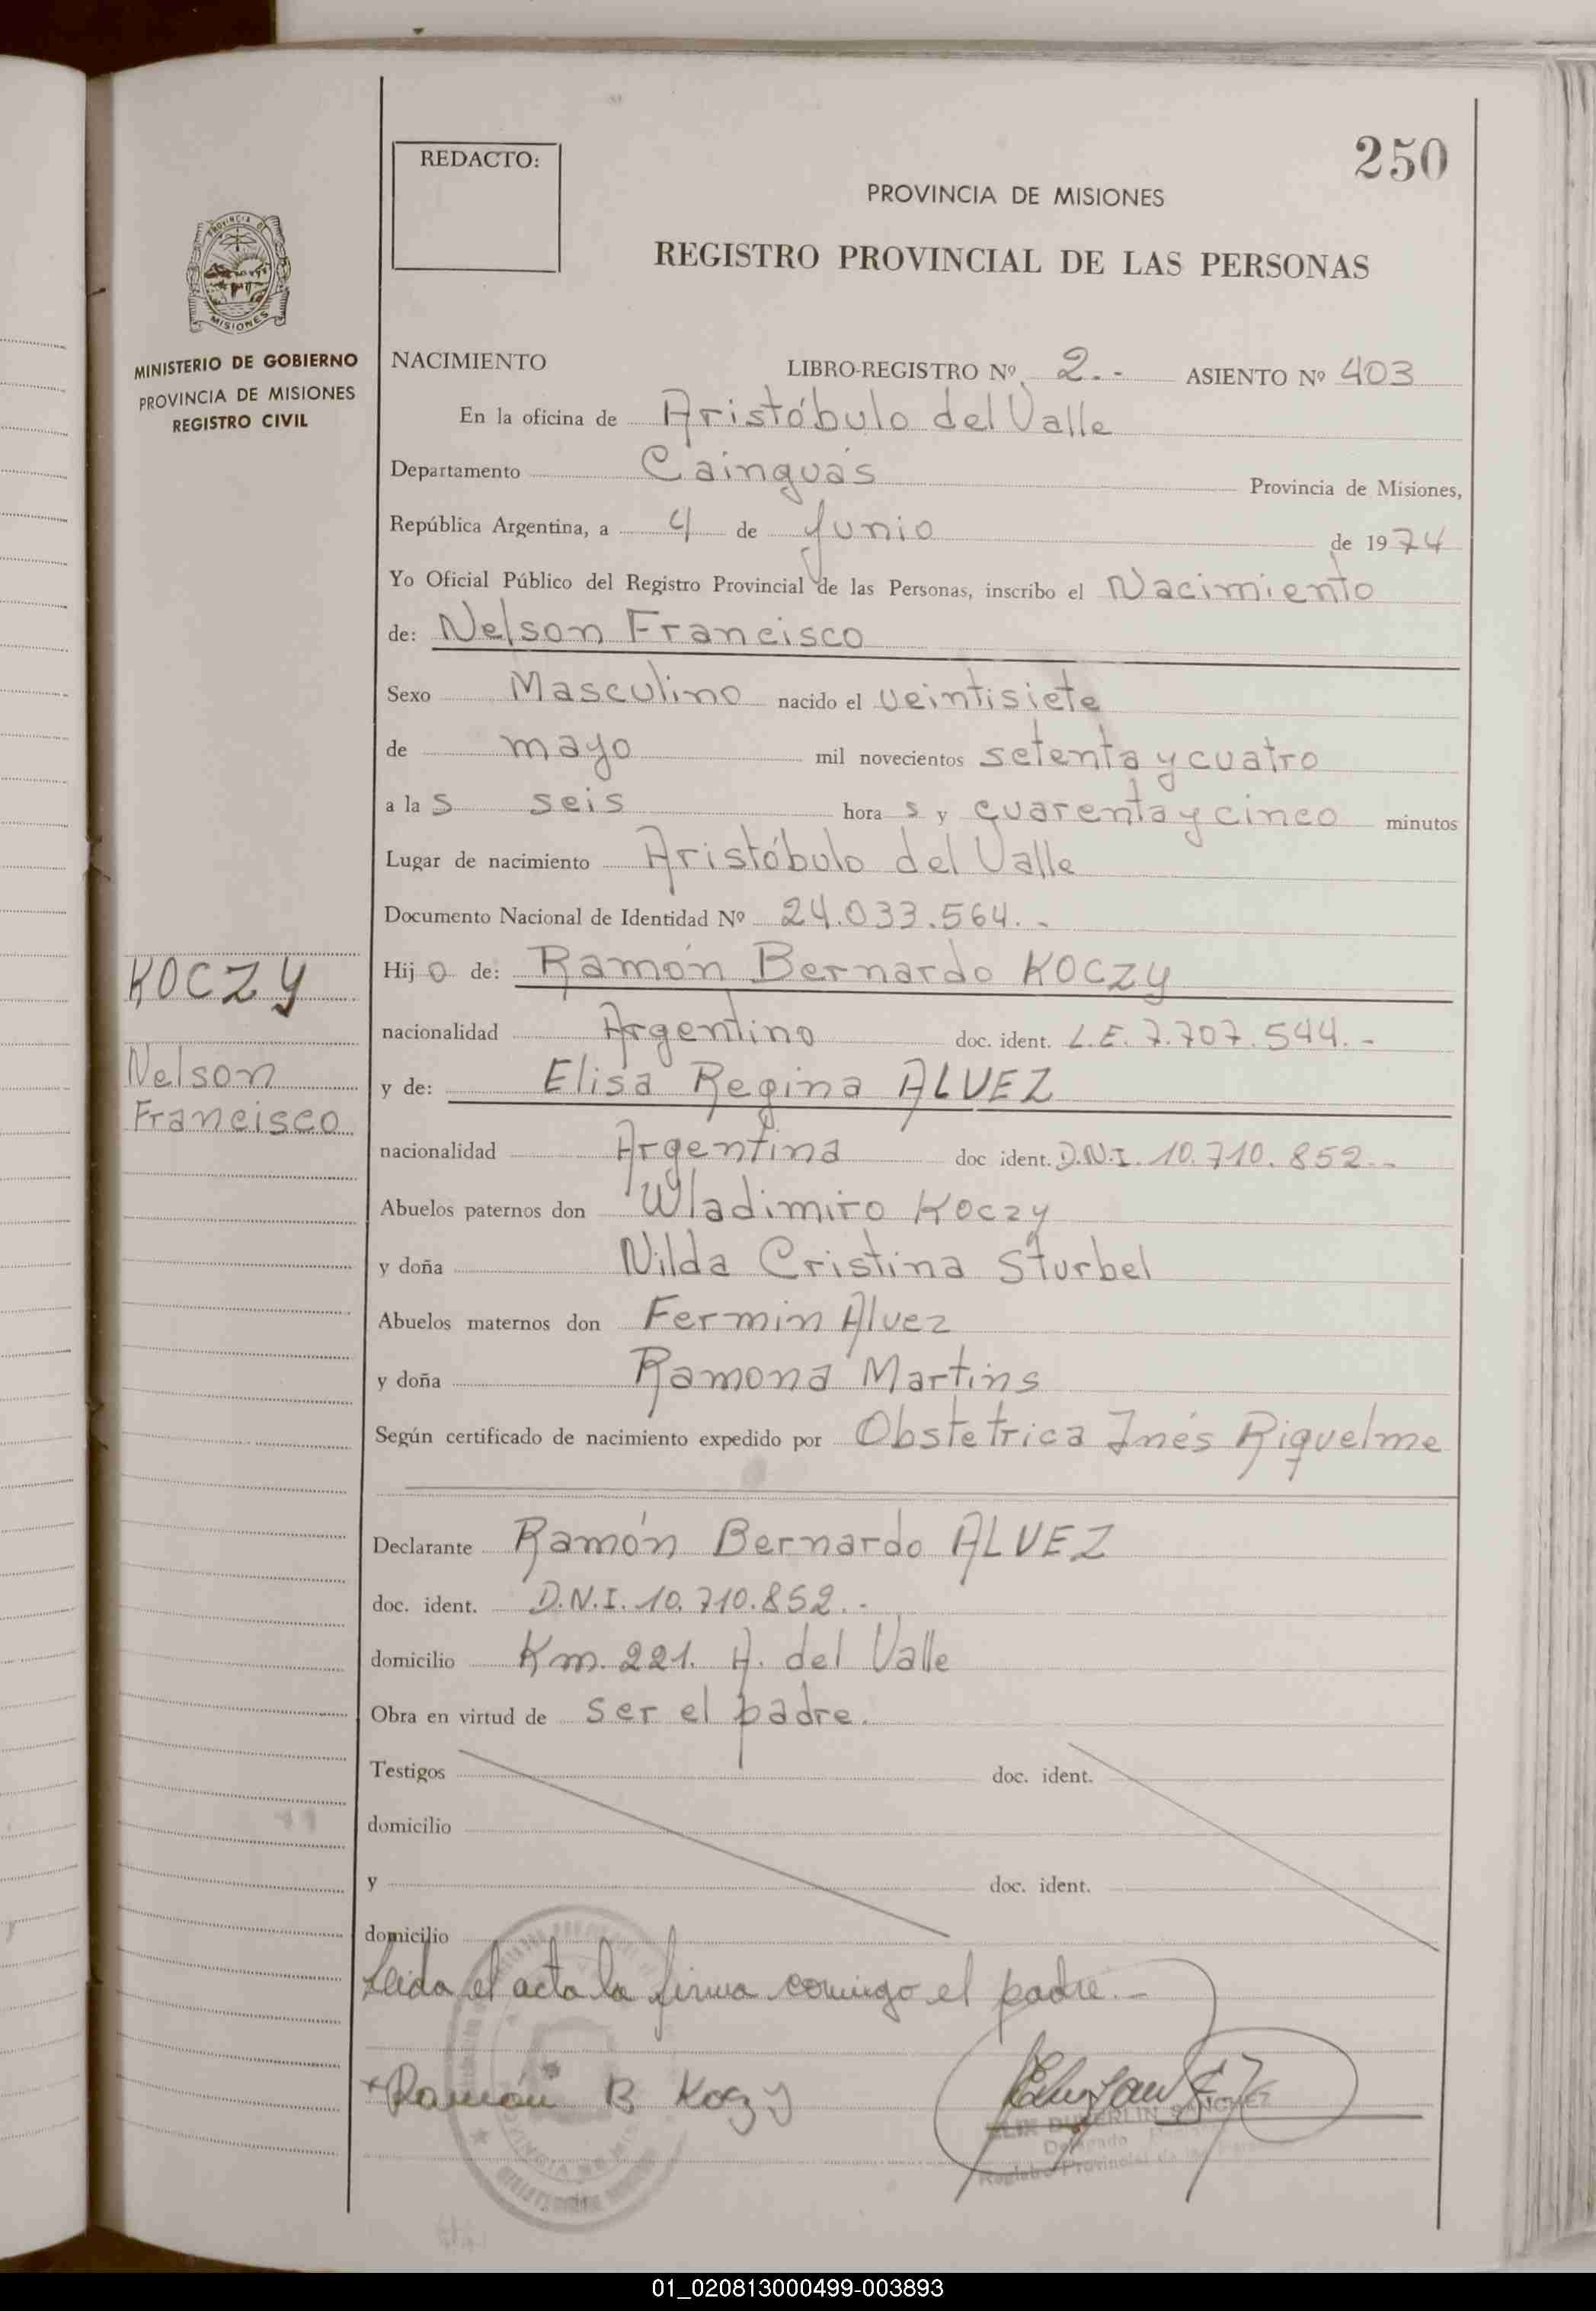 250
REDACTO:
PROVINCIA DE MISIONES
REGISTRO PROVINCIAL DE LAS PERSONAS
MISIONES
MINISTERIO DE GOBIERNO
PROVINCIA DE MISIONES
REGISTRO CIVIL
NACIMIENTO LIBRO-REGISTRO Nº 2.- ASIENTO Nº 403
En la oficina de Aristóbulo del Valle
Departamento Cainguás Provincia de Misiones,
República Argentina, a 4 de Junio de 1974
Yo Oficial Público del Registro Provincial de las Personas, inscribo el Nacimiento
de: Nelson Francisco
Sexo Masculino nacido el veintisiete
de mayo mil novecientos setenta y cuatro
a las seis horas y cuarenta y cinco minutos
Lugar de nacimiento Aristóbulo del Valle
Documento Nacional de Identidad Nº 24.033.564.-
Hijo de: Ramón Bernardo KOCZY
nacionalidad Argentino doc. ident. L.E. 7.707.544.-
y de: Elisa Regina ALVEZ
nacionalidad Argentina doc ident. D.N.I. 10.710.852.-
Abuelos paternos don Wladimiro Koczy
y doña Nilda Cristina Sturbel
Abuelos maternos don Fermin Alvez
y doña Ramona Martins
Según certificado de nacimiento expedido por Obstetrica Inés Riquelme
Declarante Ramón Bernardo ALVEZ
doc. ident. D.N.I. 10.710.852.-
domicilio Km. 221. A. del Valle
Obra en virtud de ser el padre.
Testigos doc. ident.
domicilio
y doc. ident.
domicilio
Leida el acta la firma comigo el padre.-
Ramón B Kogy
KOCZY
Nelson
Francisco
01_020813000499-003893